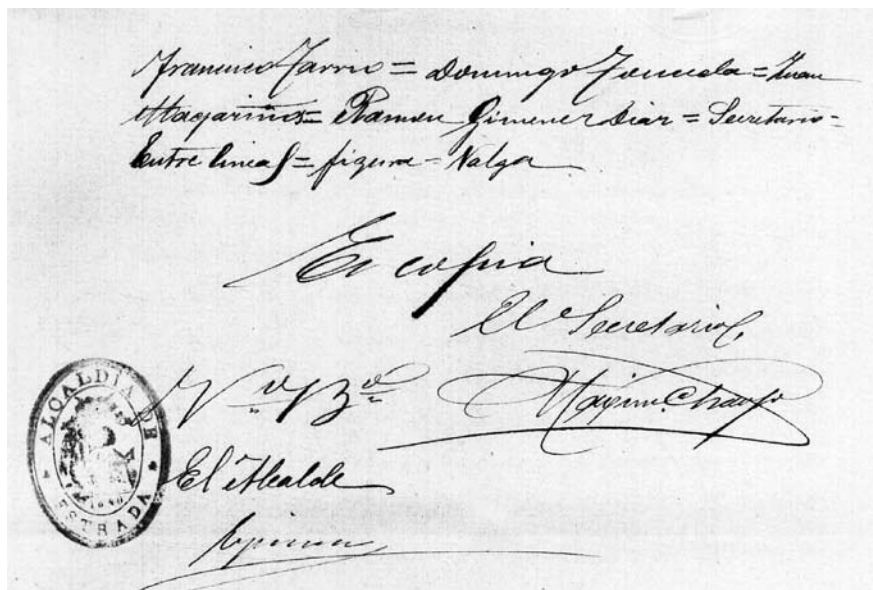 Francisco Tarrio = Domingo = Juan
Magariños = Ramon Gimenez Diaz = Secretario =
Entre lineas = figura = Valga
Es copia
El Secretario,
Vº Bº
El Alcalde
ALCALDIA DE ESTRADA